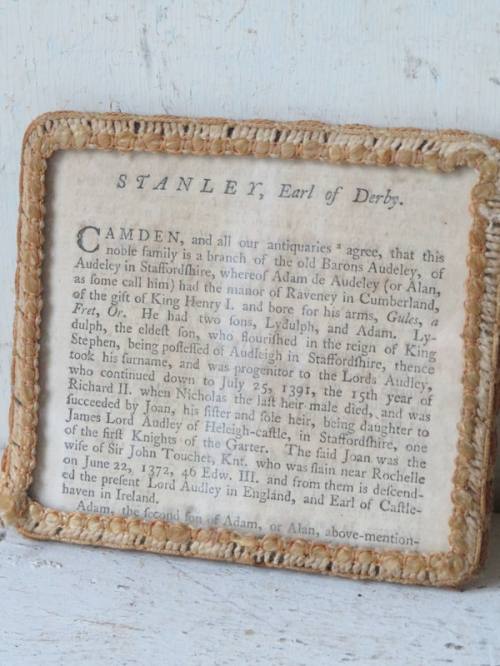 STANLEY, Earl of Derby.
CAMDEN, and all our antiquaries a agree, that this
noble family is a branch of the old Barons Audeley, of
Audeley in Staffordſhire, whereof Adam de Audeley (or Alan,
as ſome call him) had the manor of Raveney in Cumberland,
of the gift of King Henry I. and bore for his arms, Gules, a
Fret, Or. He had two ſons, Lydulph, and Adam. Ly-
dulph, the eldeſt ſon, who flouriſhed in the reign of King
Stephen, being poſſeſſed of Audleigh in Staffordſhire, thence
took his ſurname, and was progenitor to the Lords Audley,
who continued down to July 25, 1391, the 15th year of
Richard II. when Nicholas the laſt heir male died, and was
ſucceeded by Joan, his ſiſter and ſole heir, being daughter to
James Lord Audley of Heleigh-caſtle, in Staffordſhire, one
of the firſt Knights of the Garter. The ſaid Joan was the
wife of Sir John Touchet, Knt. who was ſlain near Rochelle
on June 22, 1372, 46 Edw. III. and from them is deſcend-
ed the preſent Lord Audley in England, and Earl of Caſtle-
haven in Ireland.
Adam, the ſecond ſon of Adam, or Alan, above-mention-